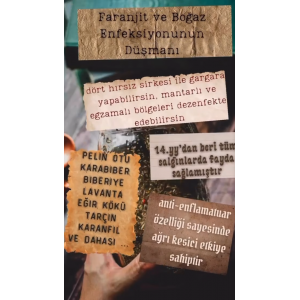 Faranjit ve Boğaz
Enfeksiyonunun
Düşmanı
dört hırsız sirkesi ile gargara
yapabilirsin, mantarlı ve
egzamalı bölgeleri dezenfekte
edebilirsin
14.yy'dan beri tüm
salgınlarda fayda
sağlamıştır
PELİN OTU
KARABİBER
BİBERİYE
LAVANTA
EĞİR KÖKÜ
TARÇIN
KARANFİL
VE DAHASI
anti-enflamatuar
özelliği sayesinde
ağrı kesici etkiye
sahiptir